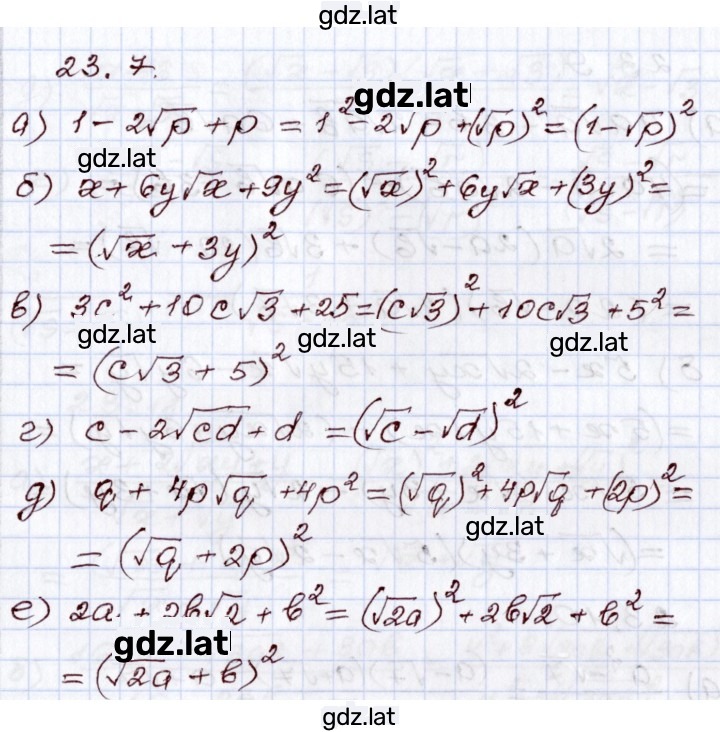 gdz.lat
23.7.
gdz.lat
а) 1 - 2√p + p = 1² - 2√p + (√p)² = (1 - √p)²
gdz.lat
б) x + 6y√x + 9y² = (√x)² + 6y√x + (3y)² =
= (√x + 3y)²
в) 3c² + 10c√3 + 25 = (c√3)² + 10c√3 + 5² =
gdz.lat gdz.lat gdz.lat
= (c√3 + 5)²
г) c - 2√cd + d = (√c - √d)²
д) q + 4p√q + 4p² = (√q)² + 4p√q + (2p)² =
gdz.lat
= (√q + 2p)²
е) 2a + 2b√2 + b² = (√2a)² + 2b√2 + b² =
gdz.lat
= (√2a + b)²
gdz.lat